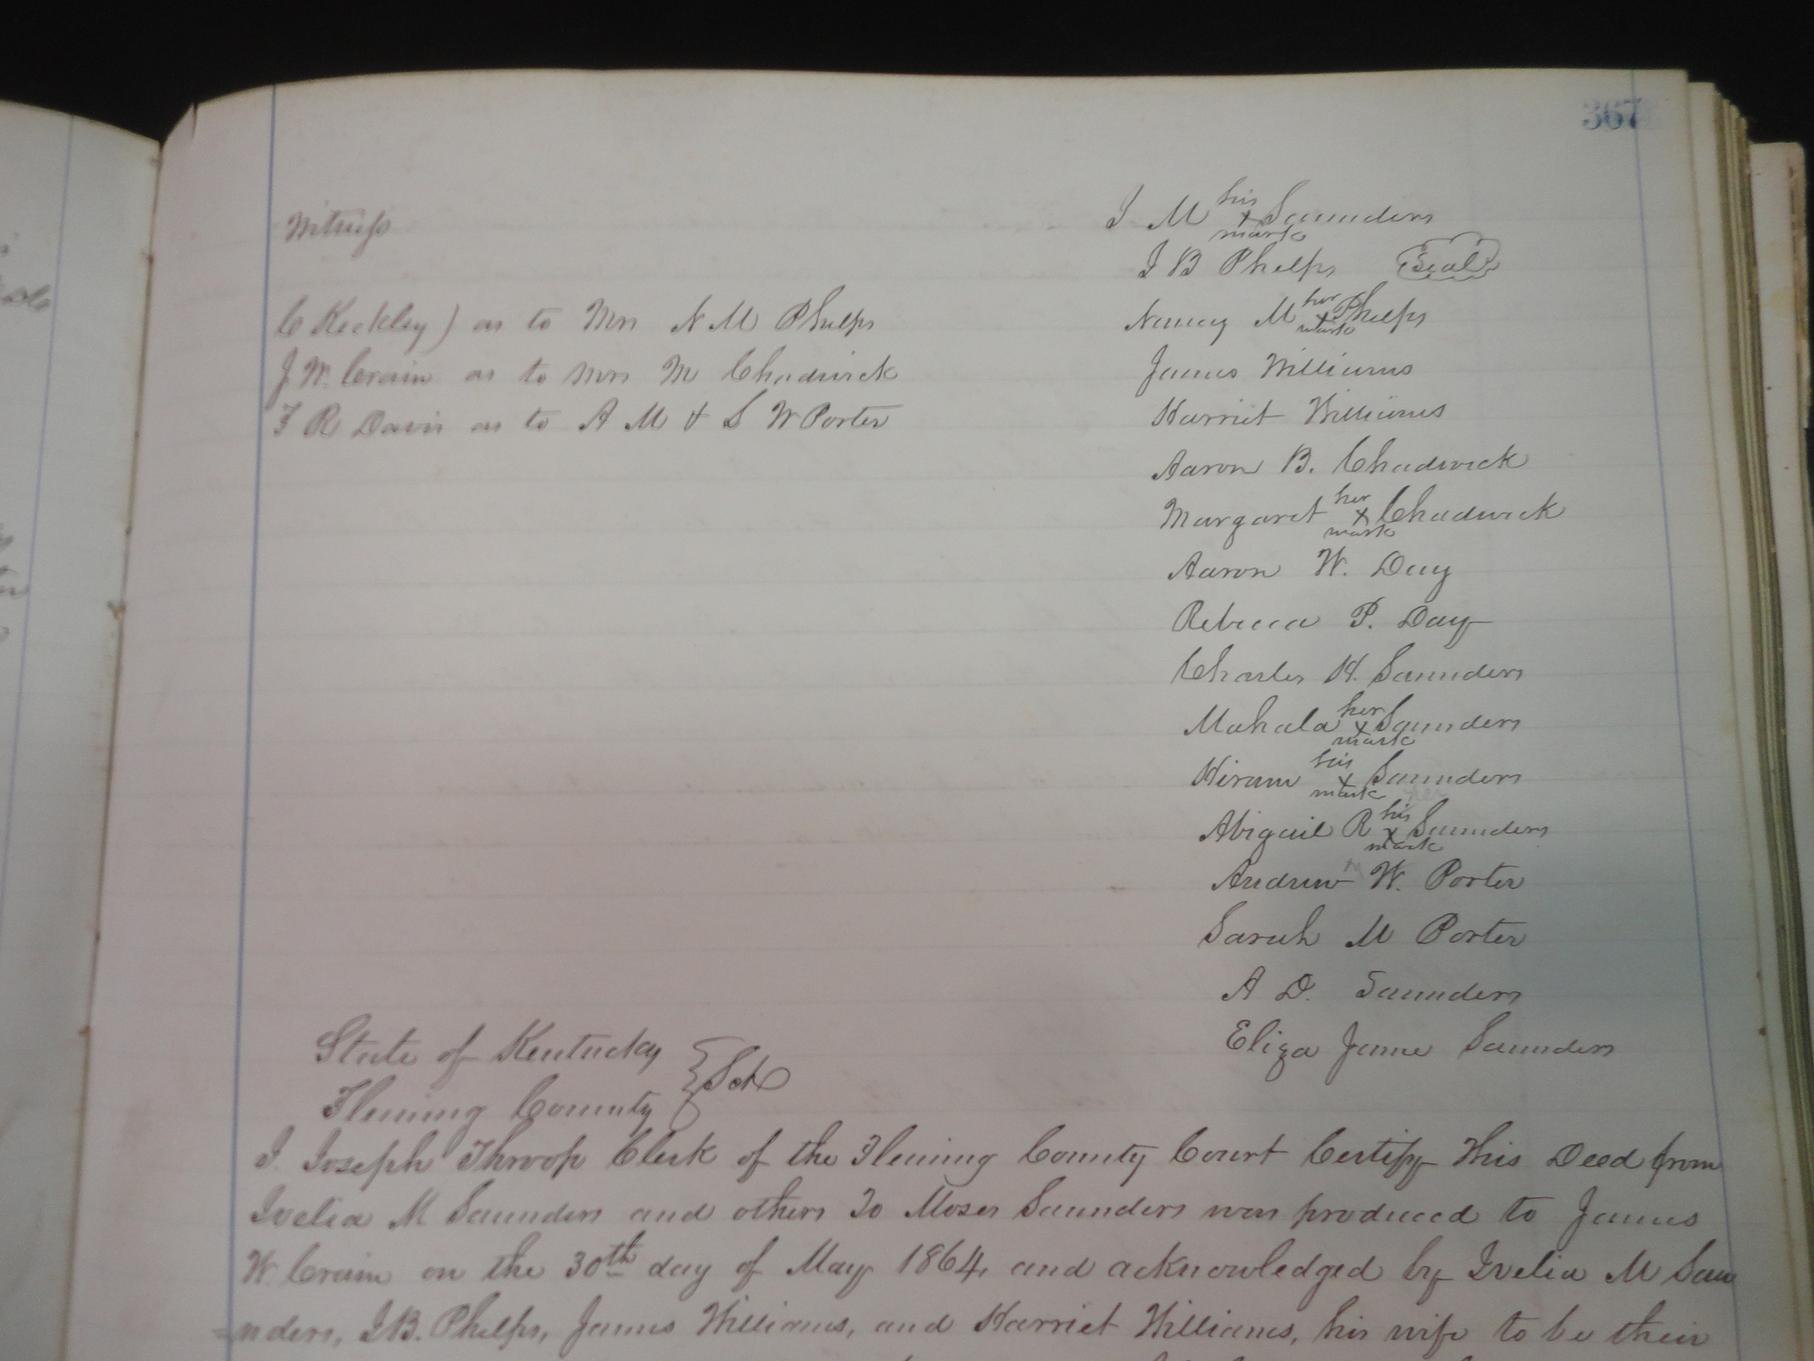 367
Witness
I M his x mark Saunders
I B Phelps Seal
C Keckley) as to Mrs N M Phelps
Nancy M her x mark Phelps
J W. Crain as to Mrs M Chadwick
James Williams
F R Davis as to A M & S W Porter
Harriet Williams
Aaron B. Chadwick
Margaret her x mark Chadwick
Aaron W. Day
Rebecca P. Day
Charles H. Saunders
Mahala her x mark Saunders
Hiram his x mark Saunders
Abigail R his x mark Saunders
Andrew W. Porter
Sarah M Porter
A D. Saunders
Eliza Jane Saunders
State of Kentucky
Fleming County } Sct
I. Joseph Throop Clerk of the Fleming County Court Certify This Deed from
Ivelia M Saunders and others To Moses Saunders was produced to James
W. Crain on the 30th day of May 1864, and acknowledged by Ivelia M Sau
=nders, I B. Phelps, James Williams, and Harriet Williams, his wife to be their